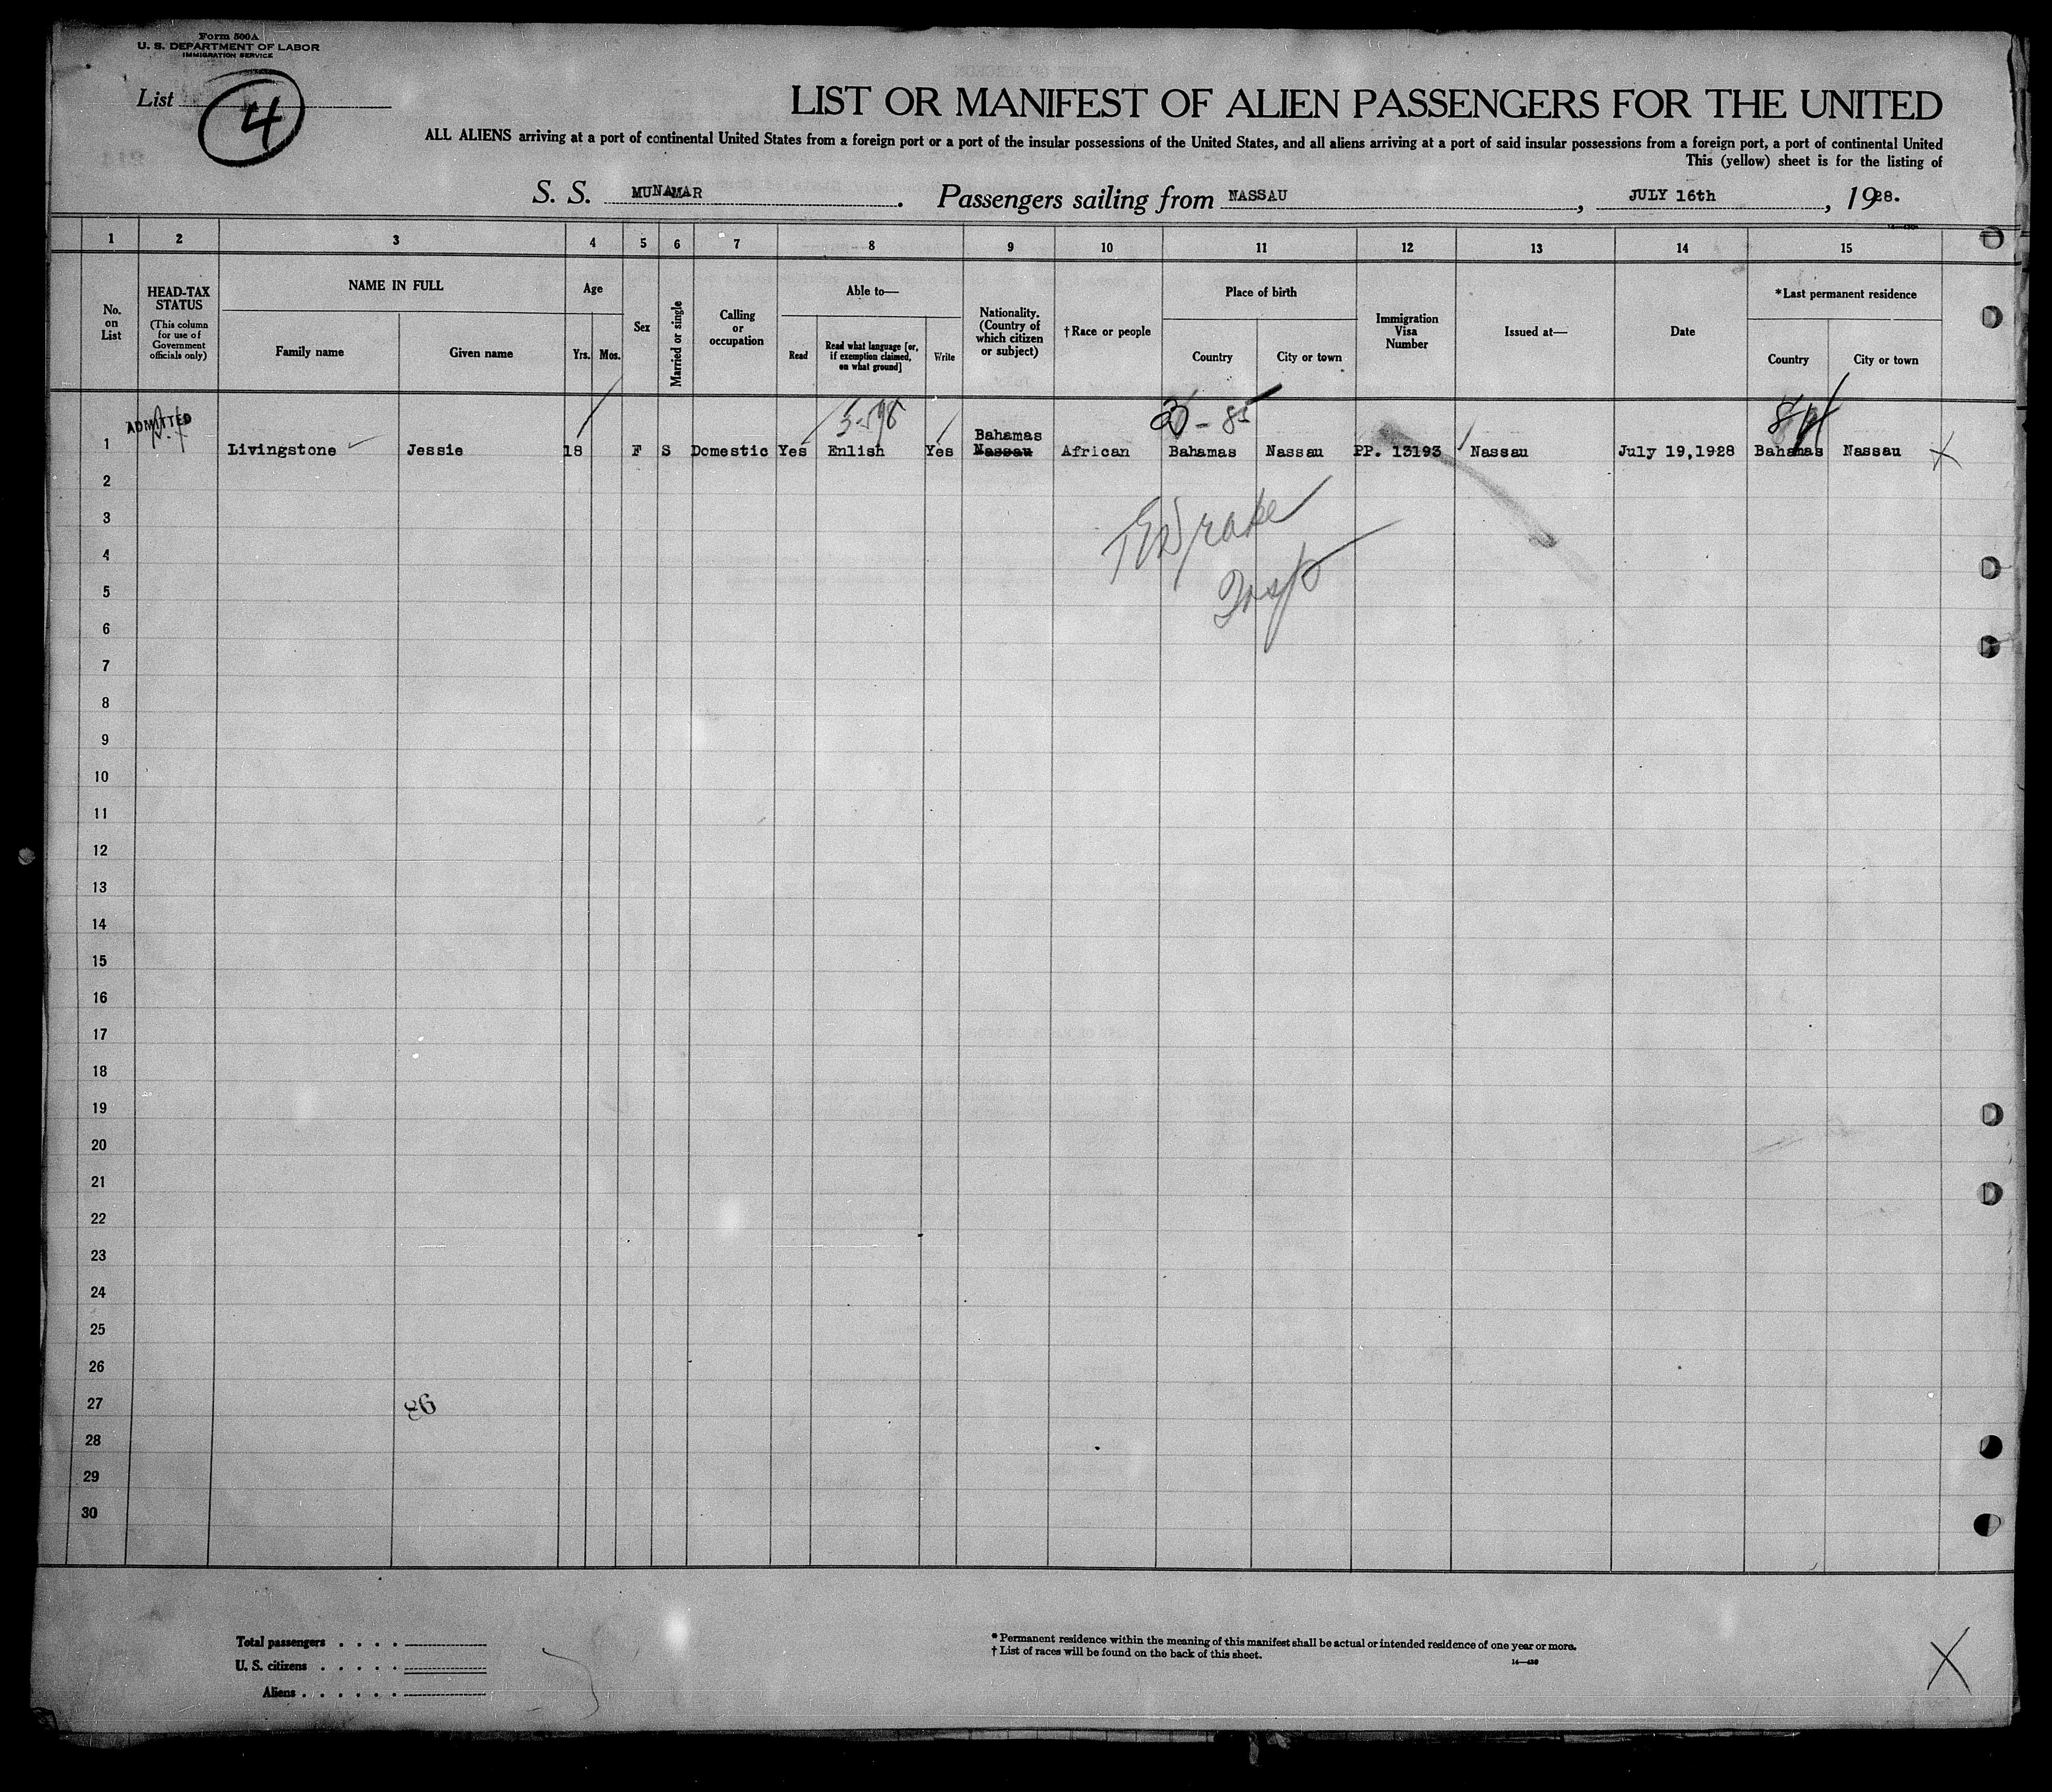 Form 500A
U. S. DEPARTMENT OF LABOR
IMMIGRATION SERVICE
List 4
LIST OR MANIFEST OF ALIEN PASSENGERS FOR THE UNITED
ALL ALIENS arriving at a port of continental United States from a foreign port or a port of the insular possessions of the United States, and all aliens arriving at a port of said insular possessions from a foreign port, a port of continental United
This (yellow) sheet is for the listing of
S. S. MUNAMAR. Passengers sailing from NASSAU, JULY 16th, 1928.
1 2 3 4 5 6 7 8 9 10 11 12 13 14 15
No. on List
HEAD-TAX STATUS
(This column for use of Government officials only)
NAME IN FULL
Family name
Given name
Age
Yrs. Mos.
Sex
Married or single
Calling or occupation
Able to—
Read
Read what language [or, if exemption claimed, on what ground]
Write
Nationality. (Country of which citizen or subject)
†Race or people
Place of birth
Country
City or town
Immigration Visa Number
Issued at—
Date
*Last permanent residence
Country
City or town
ADMITTED
1 Livingstone Jessie 18 F S Domestic Yes Enlish Yes Bahamas Nassau African Bahamas Nassau PP. 13193 Nassau July 19,1928 Bahamas Nassau X
2
3
4
5
6
7
8
9
10
11
12
13
14
15
16
17
18
19
20
21
22
23
24
25
26
27
28
29
30
Drake
Insp
86
Total passengers . . . .
U. S. citizens . . . . .
Aliens . . . . . .
* Permanent residence within the meaning of this manifest shall be actual or intended residence of one year or more.
† List of races will be found on the back of this sheet.
14—430
X